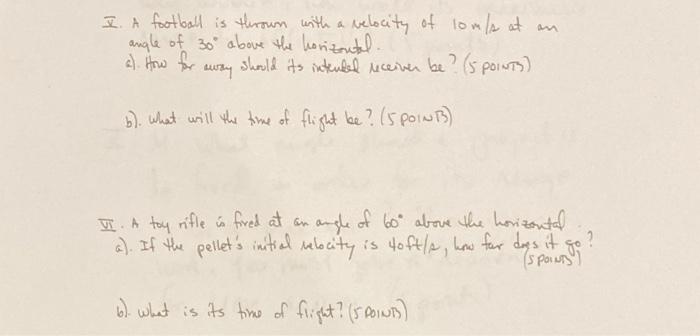 V. A football is thrown with a velocity of 10 m/s at an
angle of 30° above the horizontal.
a). How far away should its intended receiver be? (5 POINTS)
b). What will the time of flight be? (5 POINTS)
VI. A toy rifle is fired at an angle of 60° above the horizontal.
a). If the pellet's initial velocity is 40 ft/s, how far does it go?
(5 POINTS)
b). What is its time of flight? (5 POINTS)